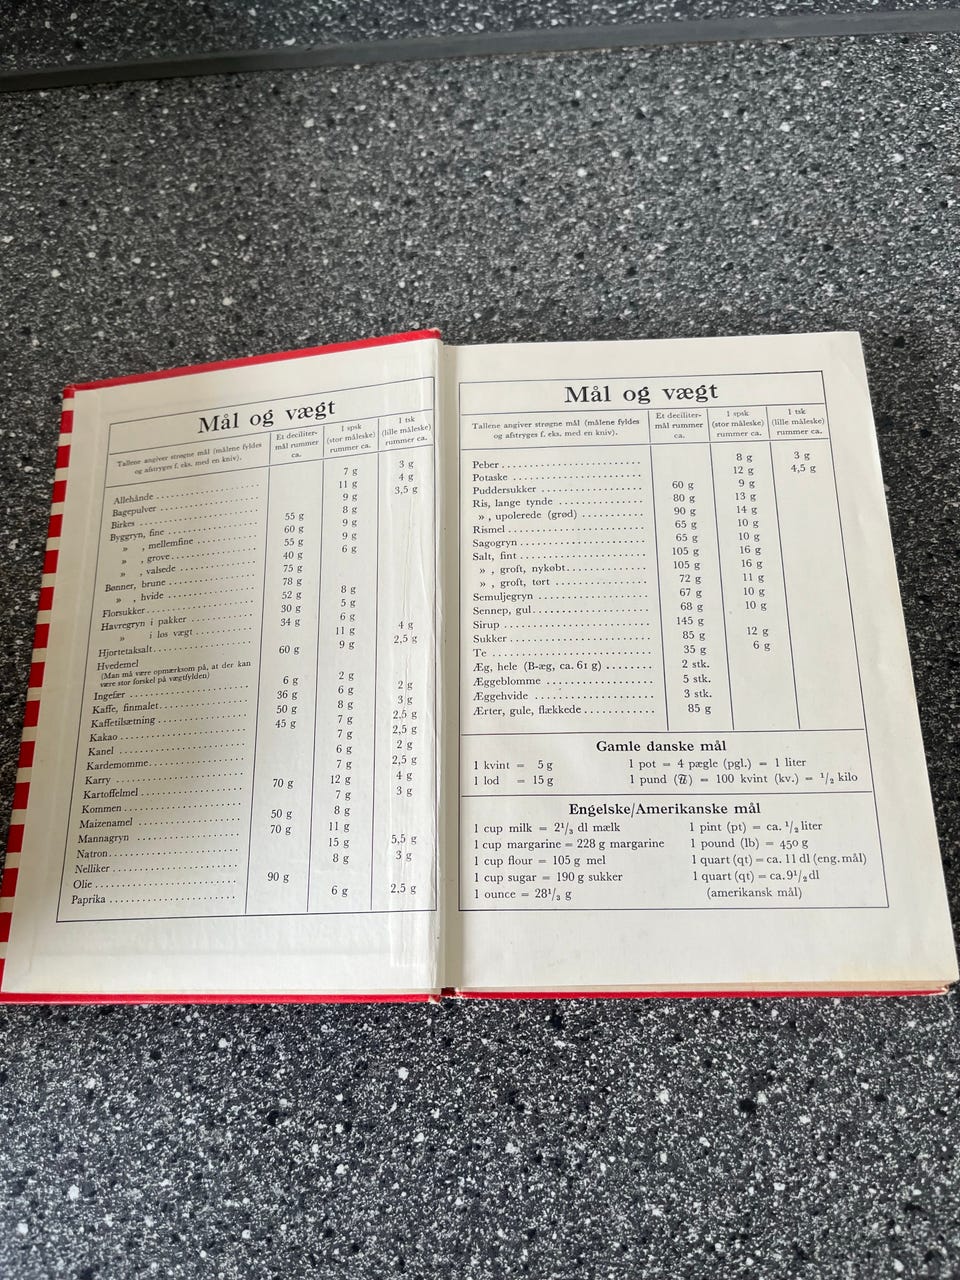 Mål og vægt
Tallene angiver strøgne mål (målene fyldes og afstryges f. eks. med en kniv).
Et deciliter-mål rummer ca.
1 spsk (stor måleske) rummer ca.
1 tsk (lille måleske) rummer ca.
Allehånde 7 g 3 g
Bagepulver 11 g 4 g
Birkes 9 g 3,5 g
Byggryn, fine 55 g 8 g
» , mellemfine 60 g 9 g
» , grove 55 g 9 g
» , valsede 40 g 6 g
Bønner, brune 75 g
» , hvide 78 g
Florsukker 52 g 8 g
Havregryn i pakker 30 g 5 g
» i løs vægt 34 g 6 g
Hjortetaksalt 11 g 4 g
Hvedemel 60 g 9 g 2,5 g
(Man må være opmærksom på, at der kan
være stor forskel på vægtfylden)
Ingefær 6 g 2 g 2 g
Kaffe, finmalet 36 g 6 g 3 g
Kaffetilsætning 50 g 8 g 2,5 g
Kakao 45 g 7 g 2,5 g
Kanel 7 g 2 g
Kardemomme 6 g 2,5 g
Karry 7 g 4 g
Kartoffelmel 70 g 12 g 3 g
Kommen 7 g
Maizenamel 50 g 8 g
Mannagryn 70 g 11 g
Natron 15 g 5,5 g
Nelliker 8 g 3 g
Olie 90 g
Paprika 6 g 2,5 g
Mål og vægt
Tallene angiver strøgne mål (målene fyldes og afstryges f. eks. med en kniv).
Et deciliter-mål rummer ca.
1 spsk (stor måleske) rummer ca.
1 tsk (lille måleske) rummer ca.
Peber 8 g 3 g
Potaske 12 g 4,5 g
Puddersukker 60 g 9 g
Ris, lange tynde 80 g 13 g
» , upolerede (grød) 90 g 14 g
Rismel 65 g 10 g
Sagogryn 65 g 10 g
Salt, fint 105 g 16 g
» , groft, nykøbt 105 g 16 g
» , groft, tørt 72 g 11 g
Semuljegryn 67 g 10 g
Sennep, gul 68 g 10 g
Sirup 145 g
Sukker 85 g 12 g
Te 35 g 6 g
Æg, hele (B-æg, ca. 61 g) 2 stk.
Æggeblomme 5 stk.
Æggehvide 3 stk.
Ærter, gule, flækkede 85 g
Gamle danske mål
1 kvint = 5 g 1 pot = 4 pægle (pgl.) = 1 liter
1 lod = 15 g 1 pund (℔) = 100 kvint (kv.) = 1/2 kilo
Engelske/Amerikanske mål
1 cup milk = 2 1/3 dl mælk 1 pint (pt) = ca. 1/2 liter
1 cup margarine = 228 g margarine 1 pound (lb) = 450 g
1 cup flour = 105 g mel 1 quart (qt) = ca. 11 dl (eng. mål)
1 cup sugar = 190 g sukker 1 quart (qt) = ca. 9 1/2 dl
1 ounce = 28 1/3 g (amerikansk mål)